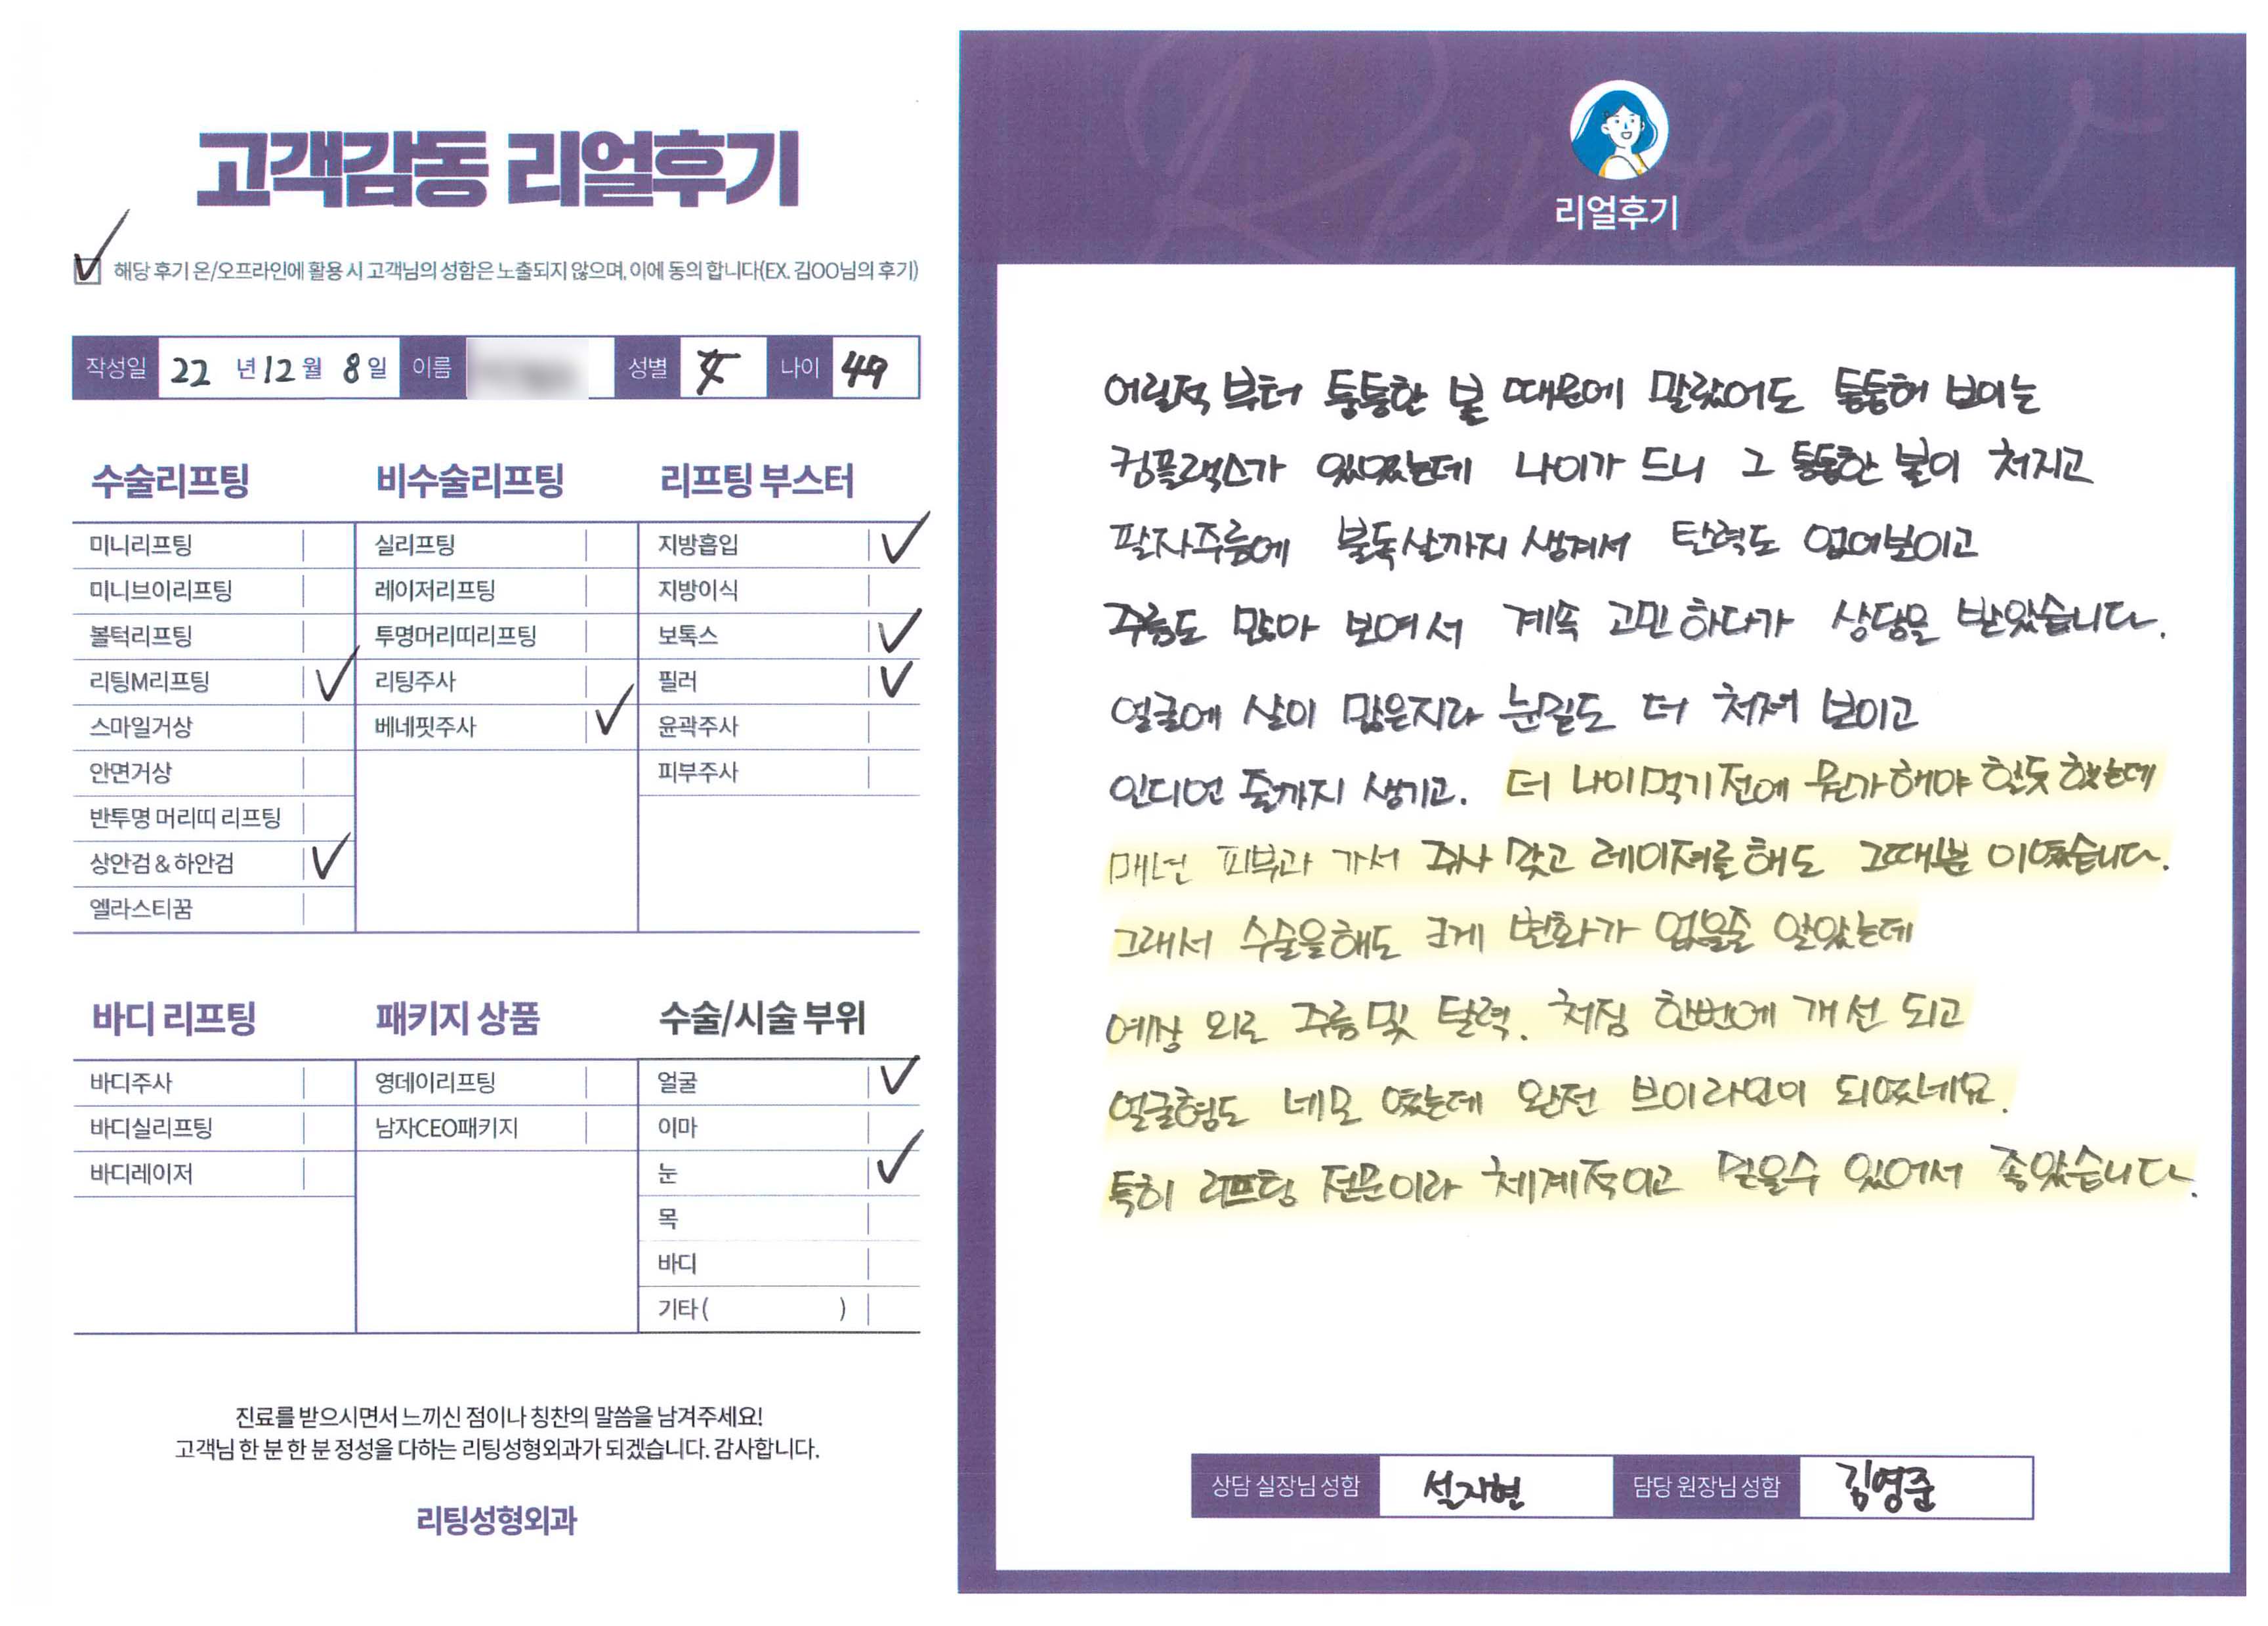 고객감동 리얼후기
해당 후기 온/오프라인에 활용 시 고객님의 성함은 노출되지 않으며, 이에 동의 합니다(EX. 김OO님의 후기)
작성일 22 년 12 월 8 일 이름 성별 女 나이 49
수술리프팅
미니리프팅
미니브이리프팅
볼턱리프팅
리팅M리프팅
스마일거상
안면거상
반투명 머리띠 리프팅
상안검 & 하안검
엘라스티꿈
비수술리프팅
실리프팅
레이저리프팅
투명머리띠리프팅
리팅주사
베네핏주사
리프팅 부스터
지방흡입
지방이식
보톡스
필러
윤곽주사
피부주사
바디 리프팅
바디주사
바디실리프팅
바디레이저
패키지 상품
영데이리프팅
남자CEO패키지
수술/시술 부위
얼굴
이마
눈
목
바디
기타 ( )
진료를 받으시면서 느끼신 점이나 칭찬의 말씀을 남겨주세요!
고객님 한 분 한 분 정성을 다하는 리팅성형외과가 되겠습니다. 감사합니다.
리팅성형외과
Review
리얼후기
어릴적 부터 통통한 볼 때문에 말랐어도 통통해 보이는
컴플랙스가 있었는데 나이가 드니 그 통통한 볼이 처지고
팔자주름에 불독살까지 생겨서 탄력도 없어보이고
주름도 많아 보여서 계속 고민 하다가 상담을 받았습니다.
얼굴에 살이 많은지라 눈밑도 더 처져 보이고
인디언 줄까지 생기고. 더 나이먹기전에 뭔가해야 할듯 했는데
매년 피부과 가서 주사 맞고 레이져를해도 그때뿐 이였습니다.
그래서 수술을해도 크게 변화가 없을줄 알았는데
예상 외로 주름및 탈력. 처짐 한번에 개선 되고
얼굴형도 네모 였는데 완전 브이라인이 되였네요.
특히 리프팅 전문이라 체계적이고 믿을수 있어서 좋았습니다.
상담 실장님 성함 설지현 담당 원장님 성함 김영준